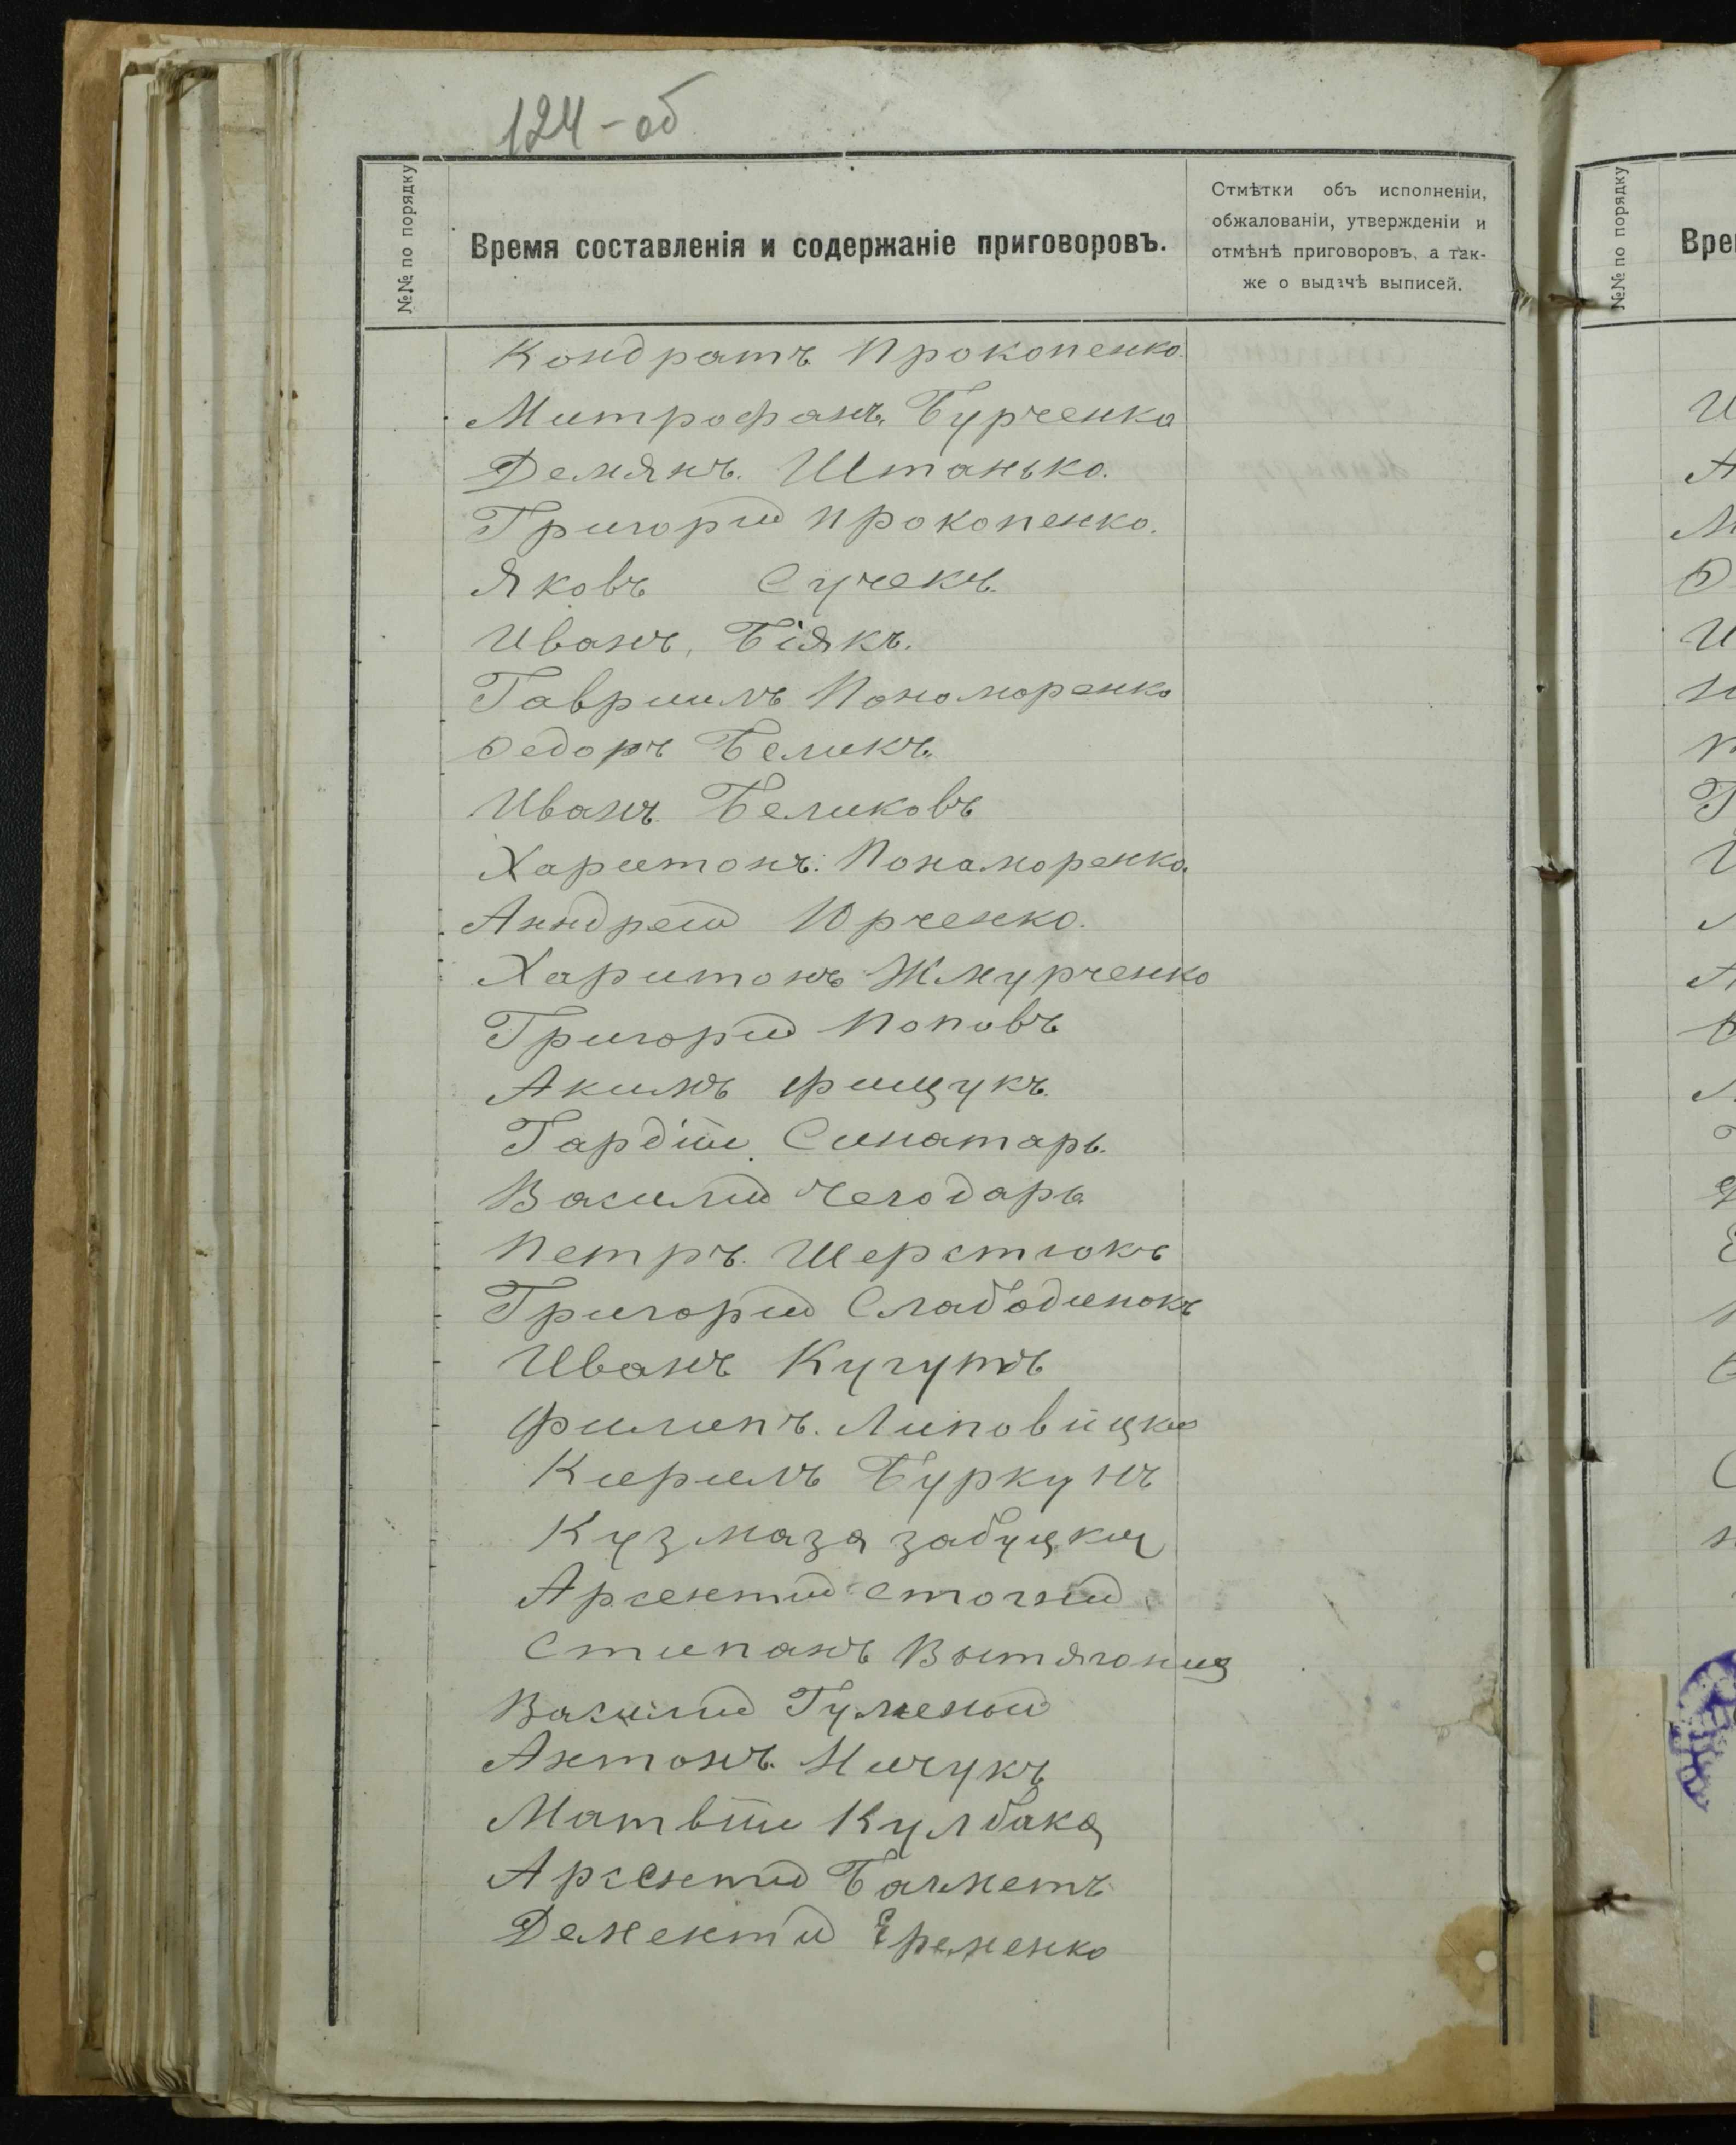 124-об
№№ по порядку
Время составленія и содержаніе приговоровъ.
Отмѣтки объ исполненіи,
обжалованіи, утвержденіи и
отмѣнѣ приговоровъ, а так-
же о выдачѣ выписей.
Кондратъ Прокопенко.
Митрофанъ Бурченко
Демянъ. Штанько.
Григорий Прокопенко.
Яковъ Сучекъ
Иванъ, Біякъ.
Гавриилъ Пономоренко
Федоръ Беликъ.
Иванъ Беликовъ
Харитонъ. Понаморенко.
Анндрей Юрченко.
Харитонъ Жмурченко
Григорий Поповъ
Акимъ Фищукъ
Гардій Синатарь.
Василий Чегодарь
Петръ. Шерстюкъ
Григорий Слабодинокъ
Иванъ Кугутъ
Филипъ. Липовицки
Кирилъ Буркунъ
Кузмаза забуцки
Арсентий стогний
Стипанъ Вытягонец
Василий Гуменый
Антонъ. Мичукъ
Матвій Кулбака
Арсентий Бачметъ
Дементий Еременко
№№ по порядку
Вре